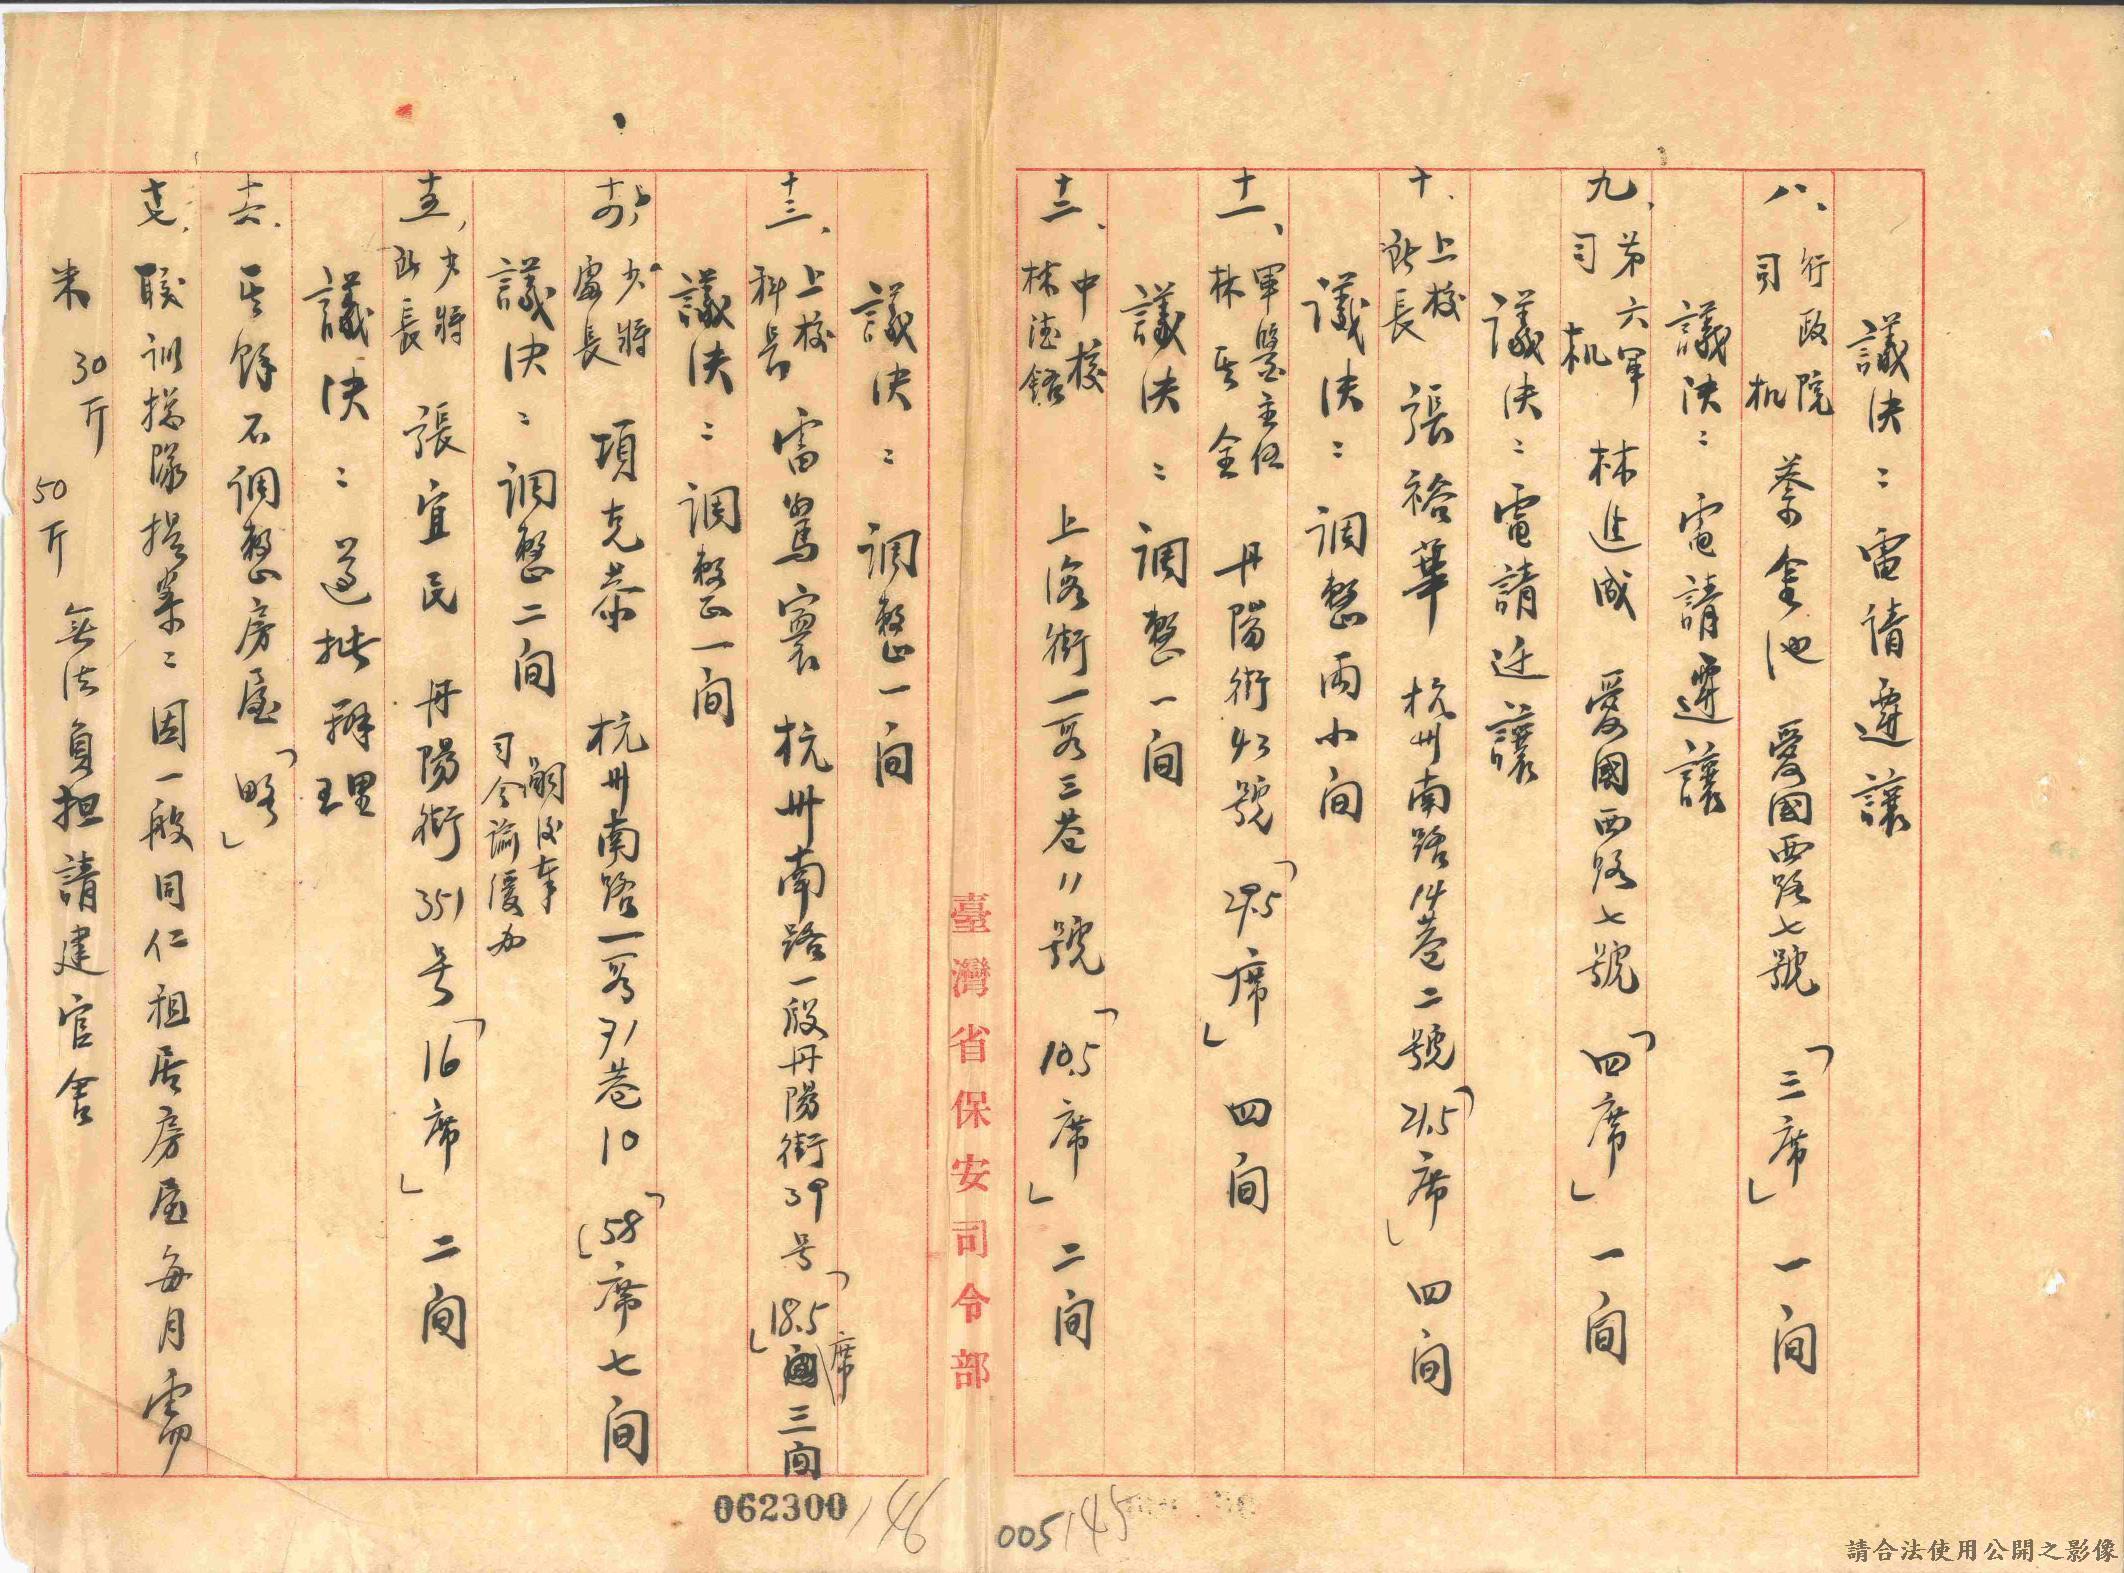 議決：電请遷讓
八、行政院司机 蔡金池 愛國西路七號「三席」一间
議决：電請遷讓
九、第六軍司机 林進成 愛國西路七號「四席」一间
議决：電請迁讓
十、上校 長 張裕華 杭州南路14巷二號「21.5席」四间
議决：調整兩小间
十一、軍醫主任 林 全 丹陽街 號「29.5席」四间
議决：調整一间
十二、中校 林 上海街一段三巷11號「10.5席」二间
議决：調整一间
十三、上校科長 雷篤寰 杭州南路一段丹陽街39号「18.5席」三间
議决：調整一间
十四、少將處長 項克恭 杭州南路一段71巷10「58席」七间
議决：調整二间 嗣後奉司令諭缓办
十五、少將 長 張宜民 丹陽街351号「16席」二间
議决：遵批辦理
十六、其餘不調整房屋「略」
十七、職训總隊提案：因一般同仁租居房屋每月需
米30斤 50斤 無法負担請建官舍
臺灣省保安司令部
062300
146
005145
請合法使用公開之影像